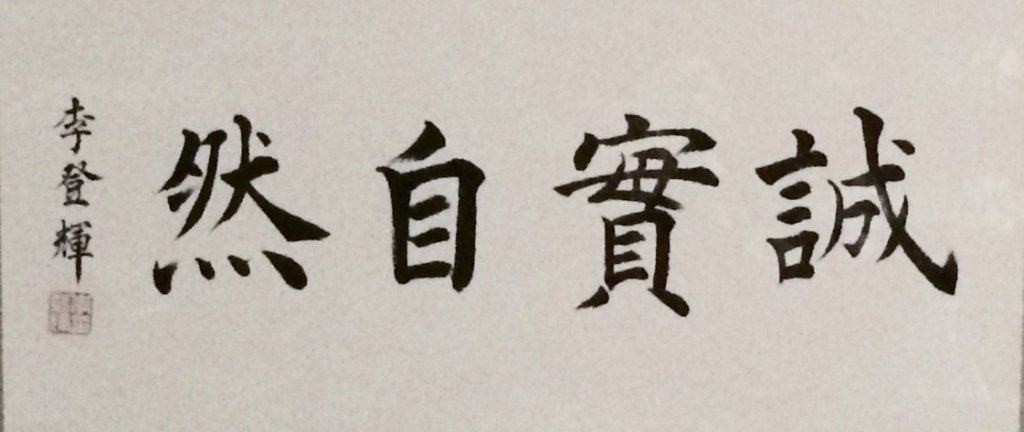 誠實自然
李登輝